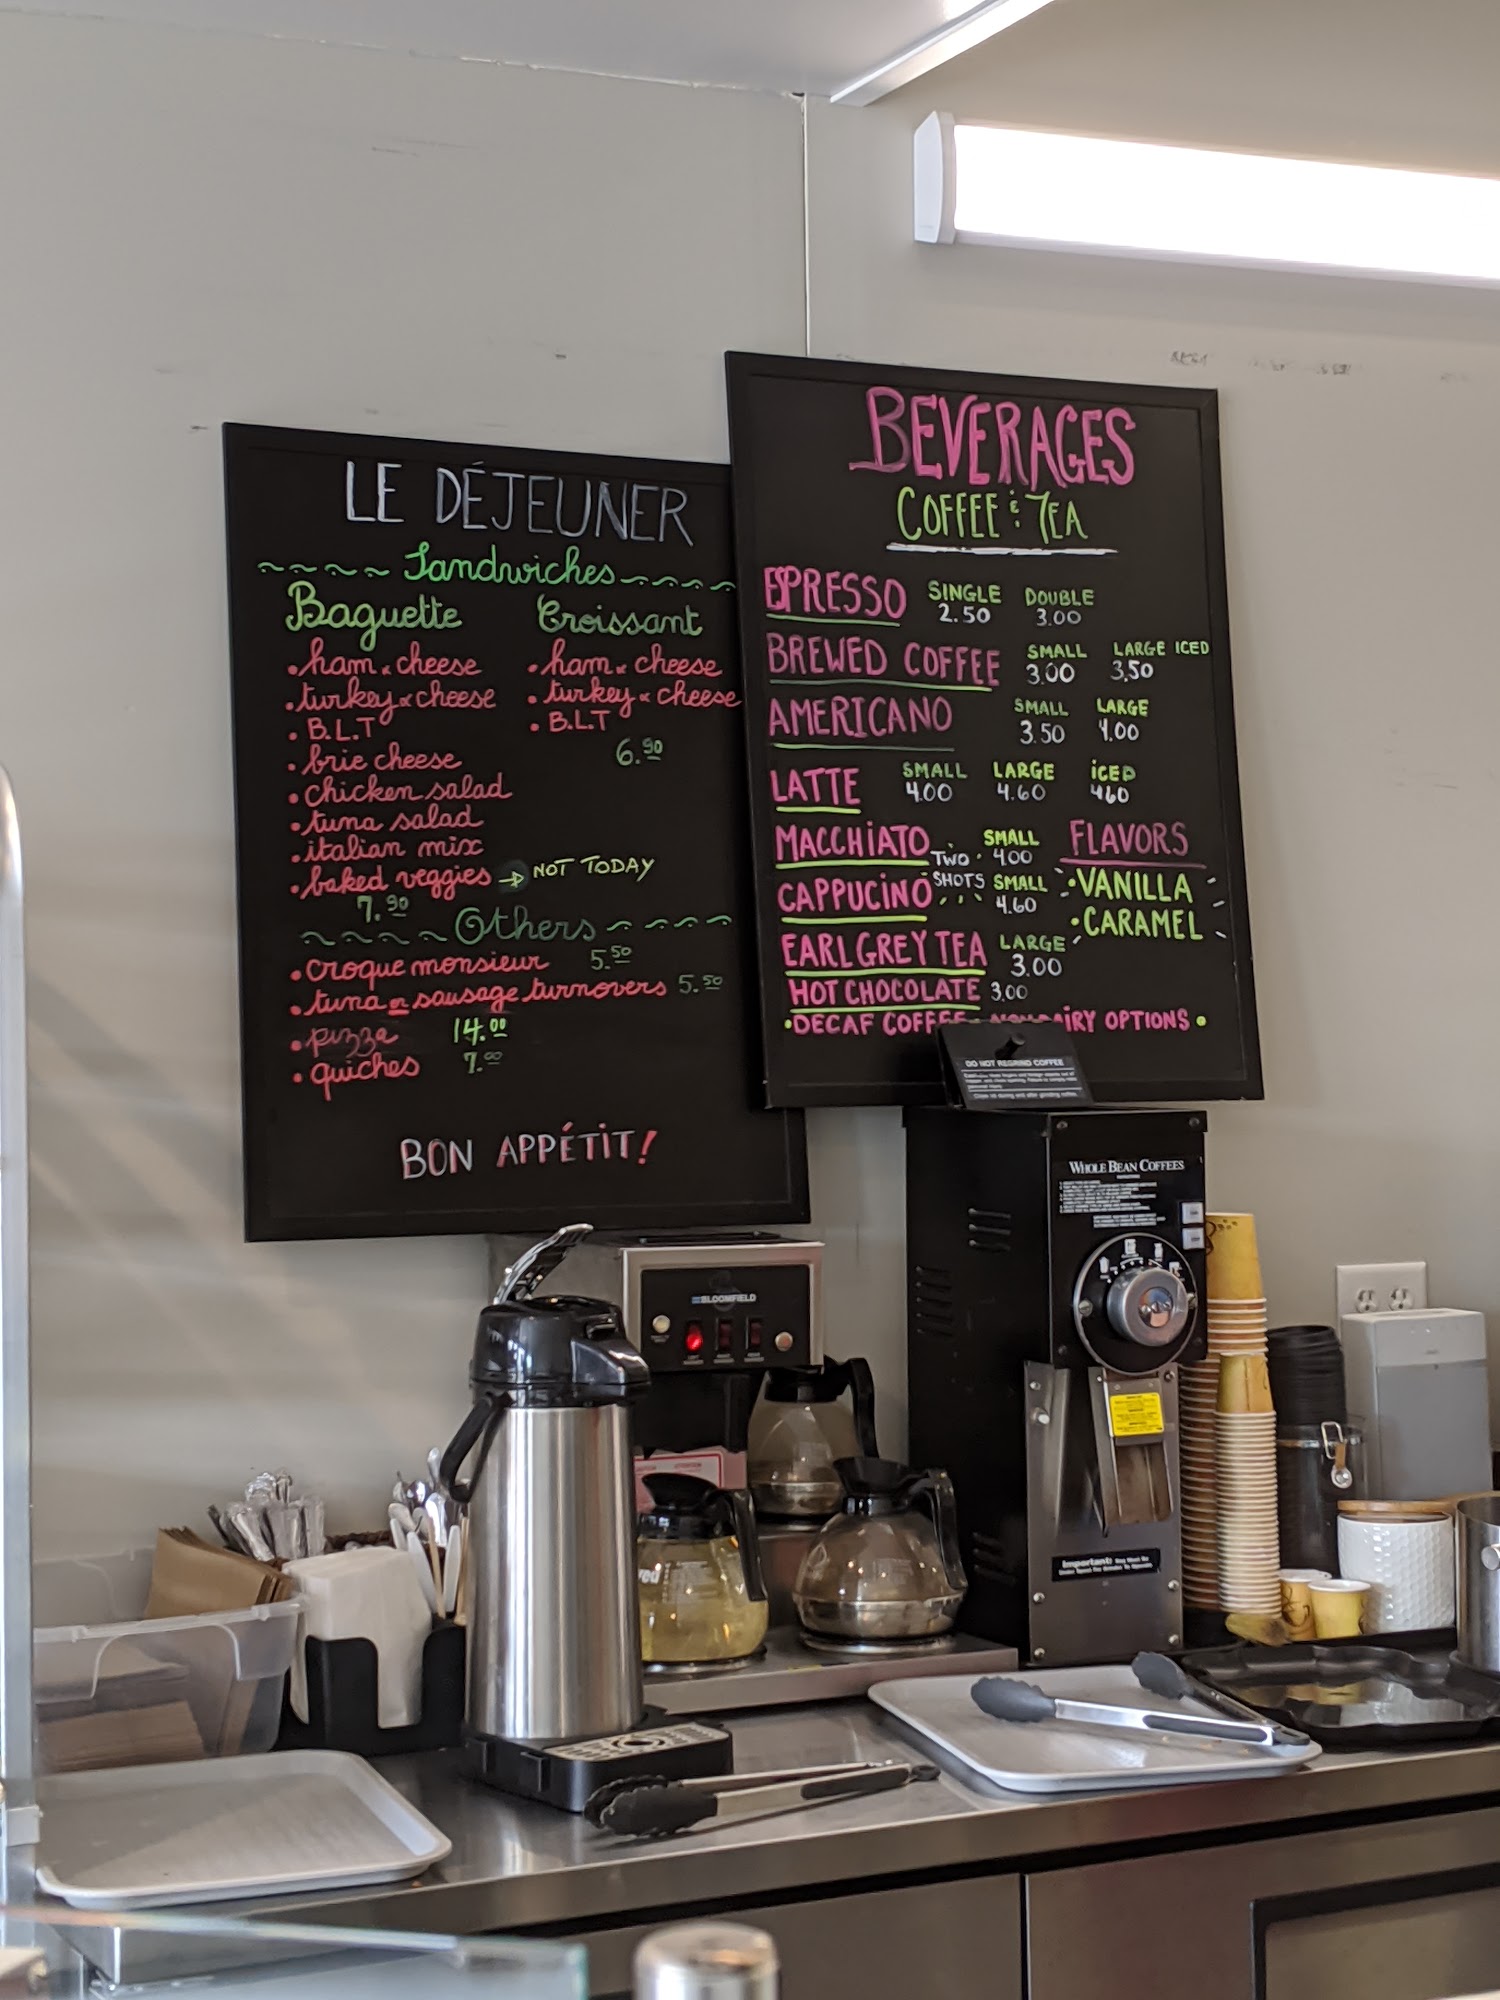 LE DÉJEUNER
Sandwiches
Baguette
• ham & cheese
• turkey & cheese
• B.L.T
• brie cheese
• chicken salad
• tuna salad
• italian mix
• baked veggies → NOT TODAY
7.90
Croissant
• ham & cheese
• turkey & cheese
• B.L.T
6.90
Others
• croque monsieur 5.50
• tuna or sausage turnovers 5.50
• pizza 14.00
• quiches 7.00
BON APPÉTIT!
BEVERAGES
COFFEE & TEA
ESPRESSO SINGLE 2.50 DOUBLE 3.00
BREWED COFFEE SMALL 3.00 LARGE ICED 3.50
AMERICANO SMALL 3.50 LARGE 4.00
LATTE SMALL 4.00 LARGE 4.60 iCED 4.60
MACCHiATO SMALL 4.00
TWO SHOTS
CAPPUCiNO SMALL 4.60
EARL GREY TEA LARGE 3.00
HOT CHOCOLATE 3.00
FLAVORS
• VANILLA
• CARAMEL
• DECAF COFFEE • NON DAiRY OPTIONS •
DO NOT REGRIND COFFEE
WHOLE BEAN COFFEES
BLOOMFIELD
Important: